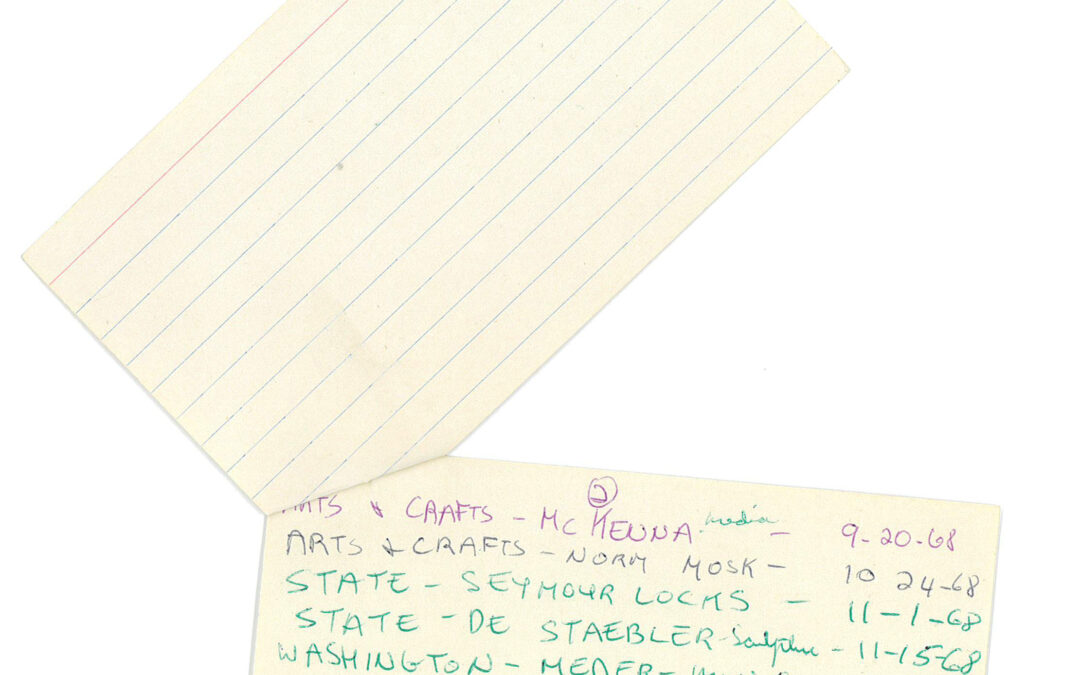 ②
ARTS & CRAFTS - MCKENNA media - 9-20-68
ARTS & CRAFTS - NORM MOSK - 10 24-68
STATE - SEYMOUR LOCKS - 11-1-68
STATE - DE STAEBLER - Sculpture - 11-15-68
WASHINGTON - MEDER -